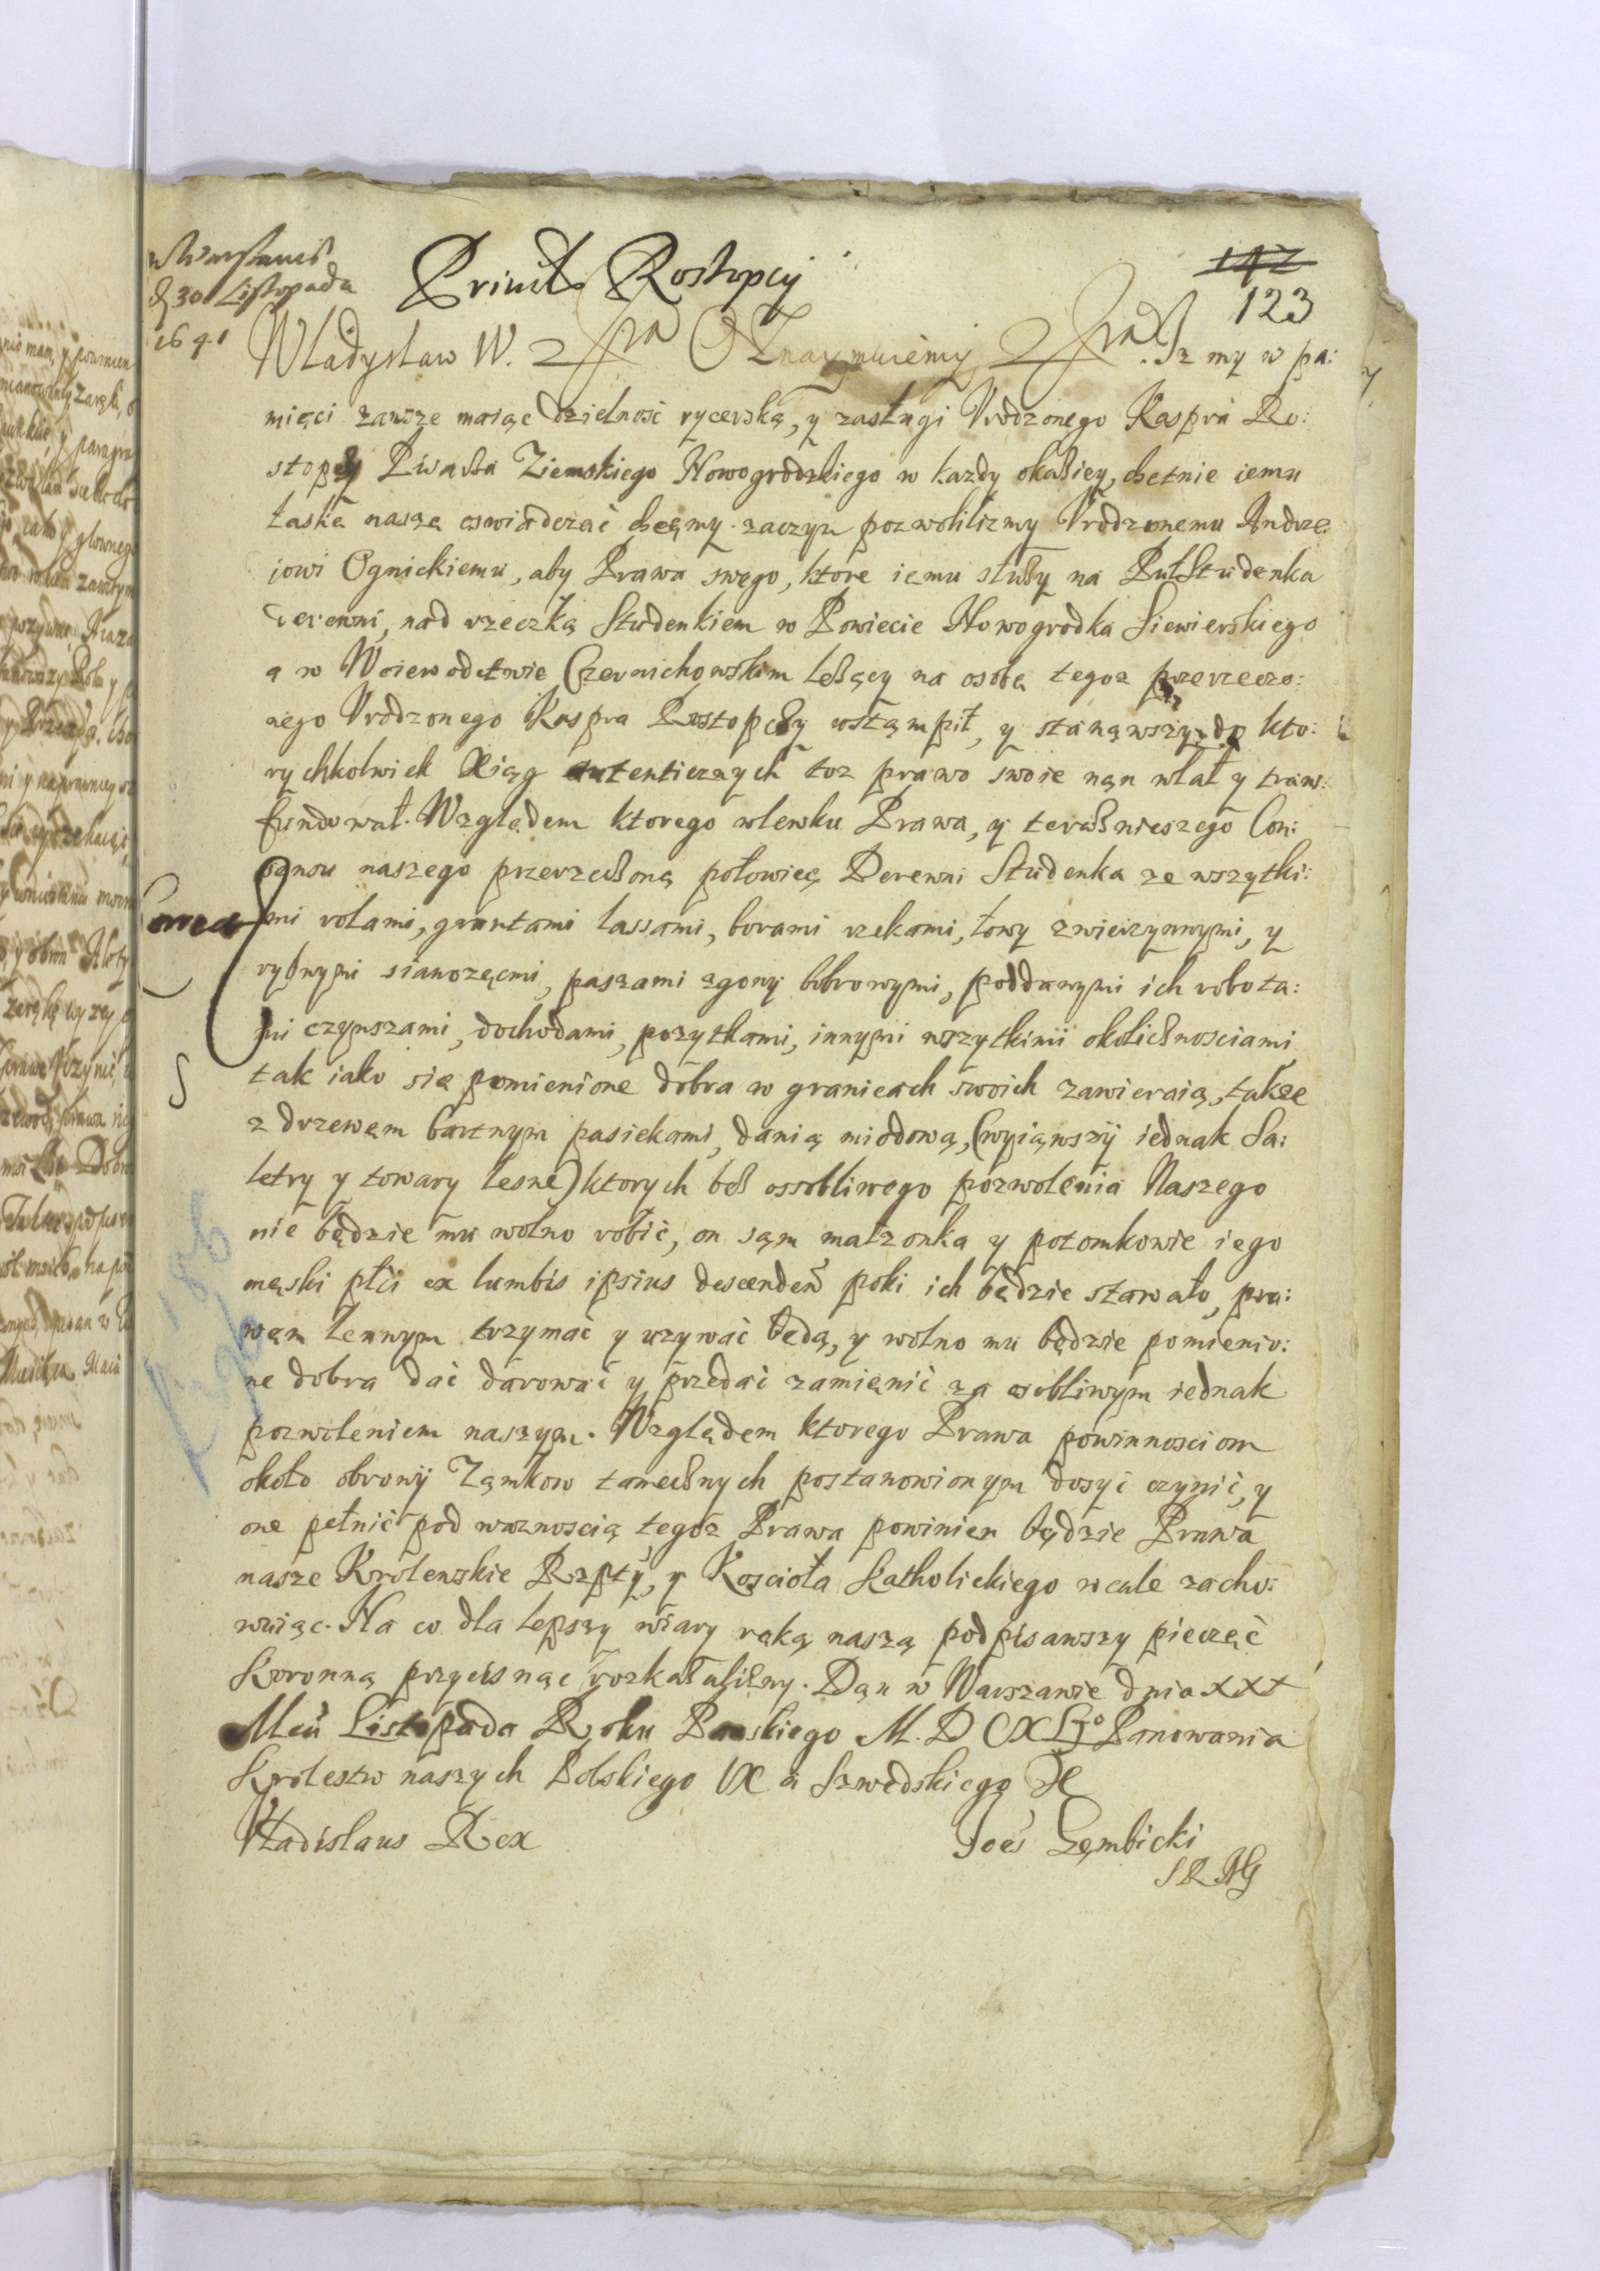 w Warszawie
d 30 Listopada
1641
Privil. Rostopczÿ
142
123
Władysław IV. Oznaymuiemÿ Jż my w pa:
mięci zawsze maiąc dzielność rycerską, y zasługi Vrodzonego Kaspra Ro:
stopczy Pisarza Ziemskiego Nowogrodzkiego w każdy okaziey, chetnie iemu
łaskę naszą oswiadczać chcąmy. zaczym pozwolilizmy Vrodzonemu Andrze:
jowi Ognickiemu, aby Prawa swego, ktore iemu służy na PułStudenka
derewni, nad rzeczką Studenkiem w Powiecie Nowogrodka Siewierskiego
a w Woiewodztwie Czernichowskim leżący na osobę tegoz przerzeczo:
nego Vrodzonego Kaspra Rostopczy ustąmpił, y stanąwszy do kto:
rychkolwiek Xiąg autenticznych toz prawo swoie nąn wlał y trans:
fundował. Względem ktorego wlewku Prawa, y terażnieszego Con:
sęnsu naszego przerzeczoną połowicą Derewni Studenka ze wszytki:
mi rolami, gruntami lassami, borami rzekami, łowy zwierzynnymi, y
rybnymi sianozęcmi, paszami zgony bobrowymi, poddanymi ich robota:
mi czynszami, dochodami, pozytkami, innymi wszytkimi okolicżnosciami,
tak iako się pomienione dobra w granicach swoich zawieraią, także
z drzewem bartnym pasiekami, danią miodową, (wyiąwszÿ iednak Sa:
letry y towary lesne) ktorych beż ossobliwego pozwolenia Naszego
nie będzie mu wolno robić, on sąm małzonka y potomkowie iego
męski płci ex lumbis ipsius descendeñ poki ich będzie stawało, pra:
wem lennym trzymać y uzywać będą, y wolno mu będzie pomienio:
ne dobra dać darować y przedać zamięnić za osobliwym iednak
pozwoleniem naszym. Względem ktorego Prawa powinnosciom
około obronÿ Ząmkow tamecżnych postanowionym dosyć czynić, y
one pełnić pod waznoscią tegoz Prawa powinien będzie Prawa
nasze Krolewskie Rzptÿ, y Koscioła Katholickiego wcale zacho:
wuiąc. Na co dla lepszy wiary ręką naszą podpisawszy pieczęć
Koronną przycisnąc rozkazalizmy. Dąn w Warszawie dnia XXX
Mcã Listopada Roku Panskiego M.DCXLIº Panowania
Krolestw naszych Polskiego IX a Szwedskiego X
Vladislaus Rex
Joēs Gęmbicki
SRMG